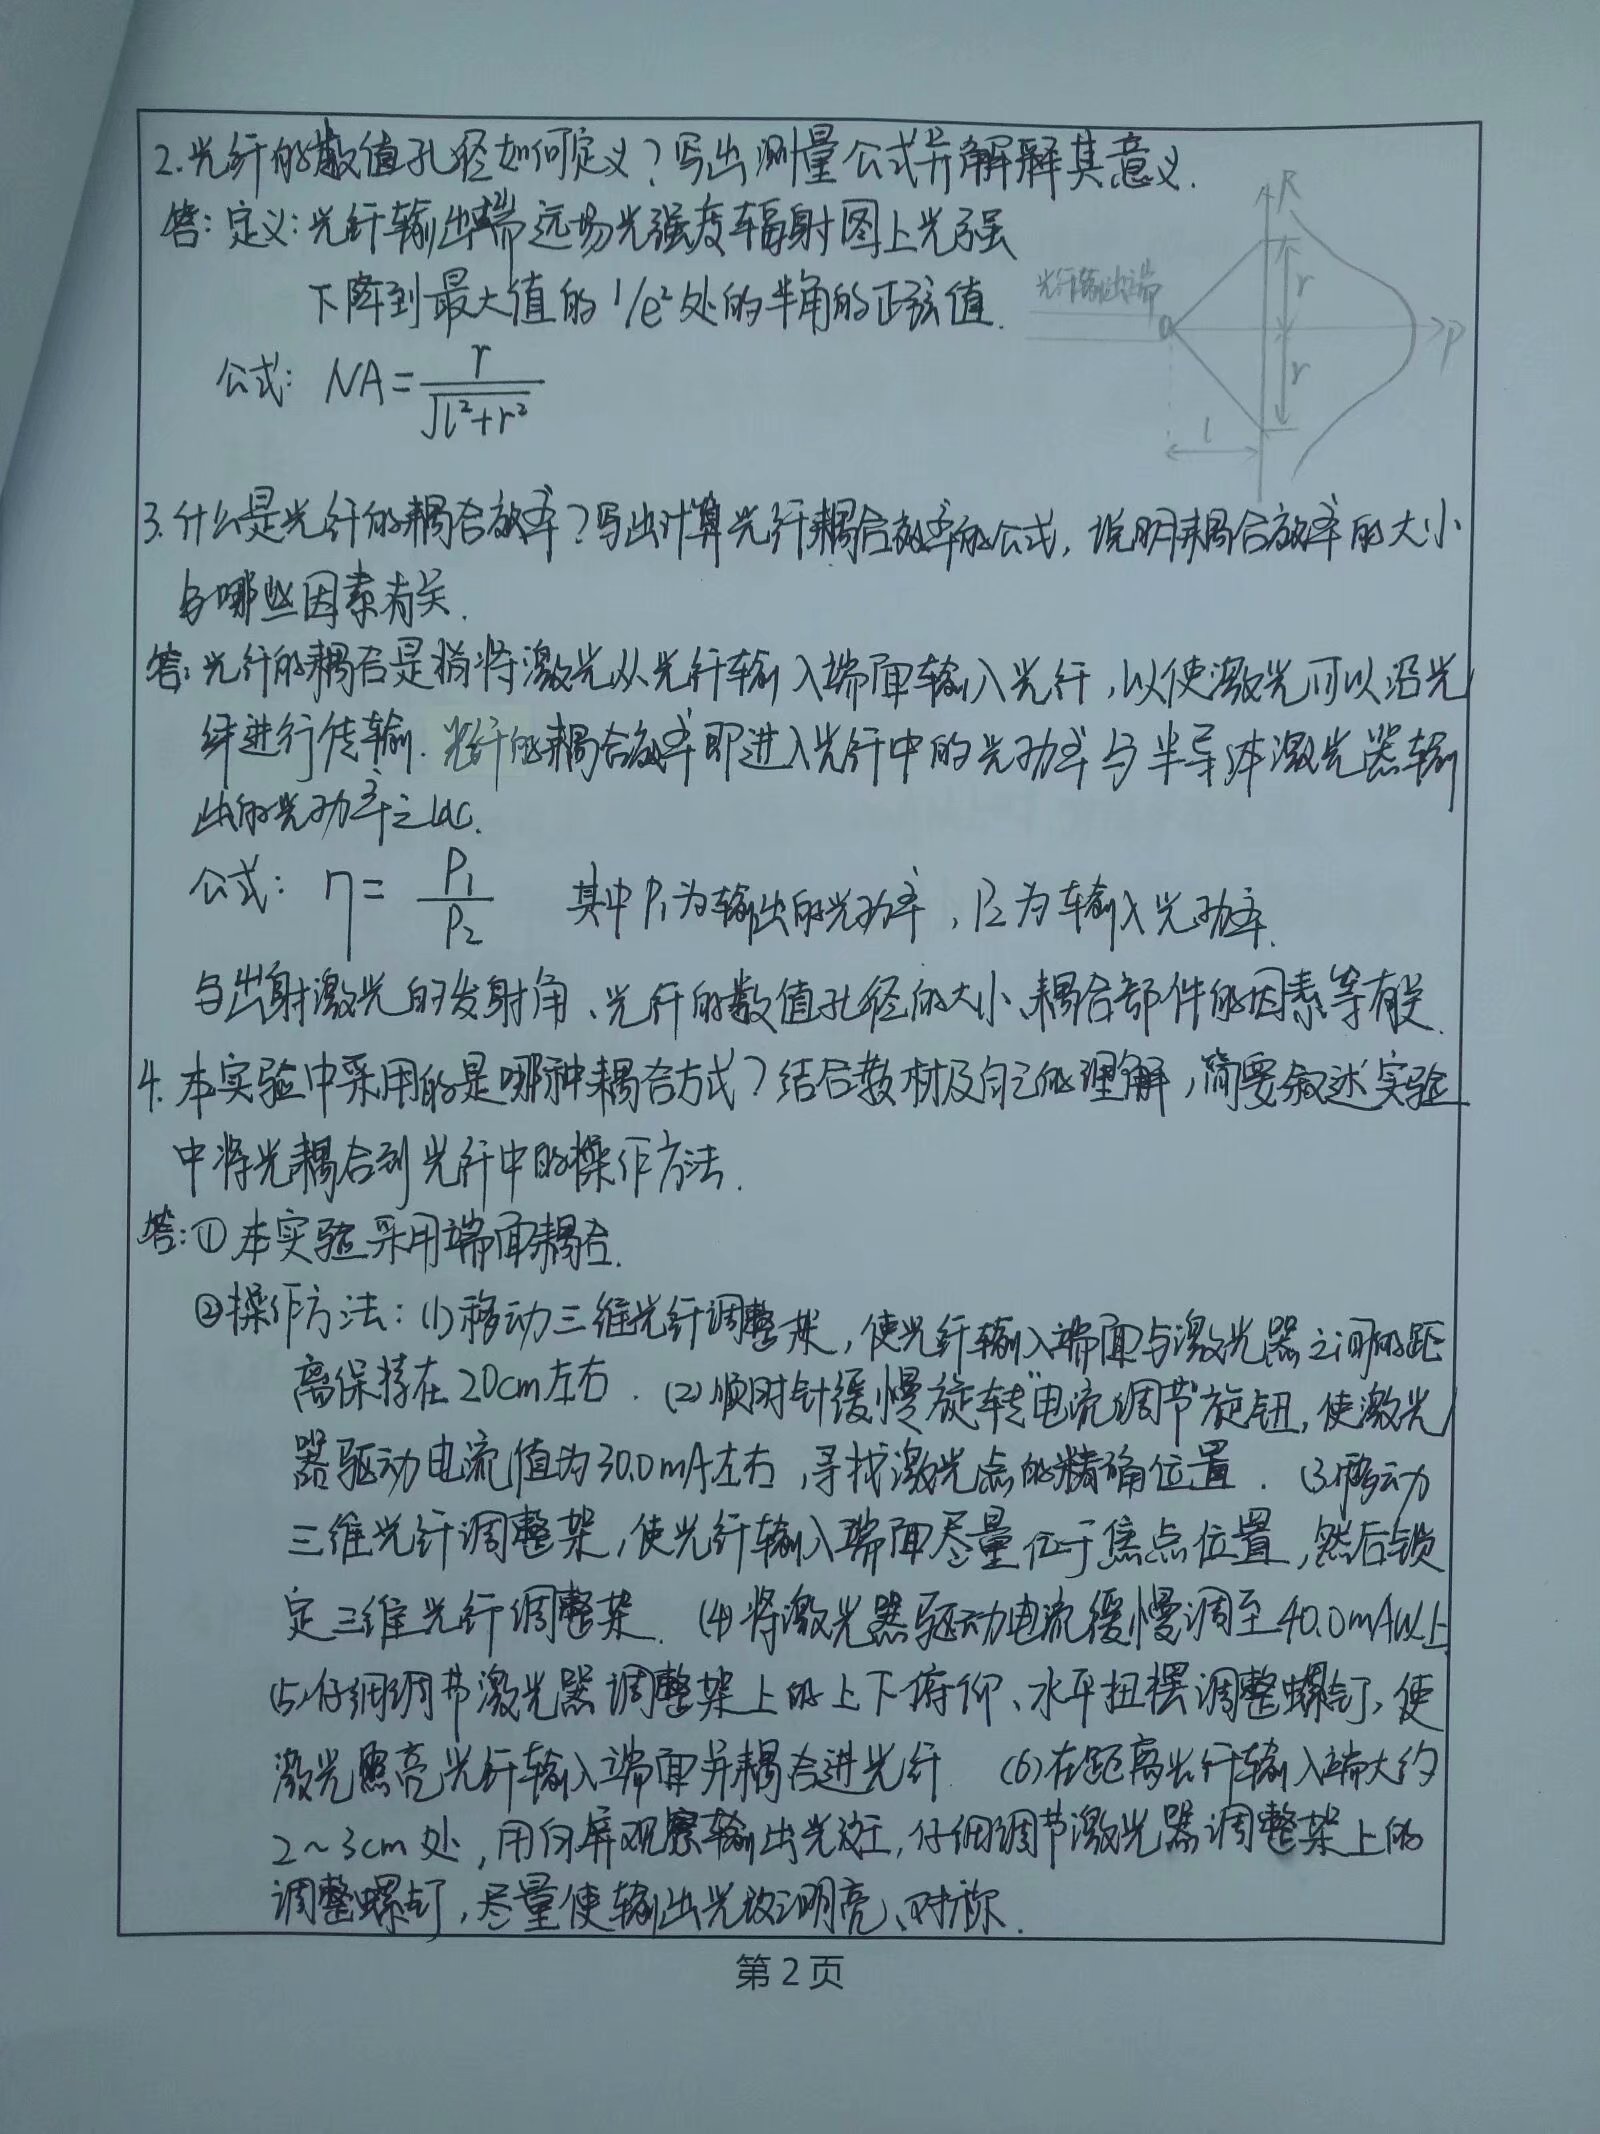 2.光纤的数值孔径如何定义?写出测量公式并解释其意义.
答:定义:光纤输出端远场光强度辐射图上光强
下降到最大值的1/e²处的半角的正弦值.
公式: NA=r/√(l²+r²)
光纤输出端
R
r
0
P
r
l
3.什么是光纤的耦合效率?写出计算光纤耦合效率的公式,说明耦合效率的大小
与哪些因素有关.
答:光纤的耦合是指将激光从光纤输入端面输入光纤,以使激光可以沿光
纤进行传输.光纤的耦合效率即进入光纤中的光功率与半导体激光器输
出的光功率之比.
公式: η=P₁/P₂ 其中P₁为输出的光功率,P₂为输入光功率.
与出射激光的发射角、光纤的数值孔径的大小、耦合部件的因素等有关.
4.本实验中采用的是哪种耦合方式?结合教材及自己的理解,简要叙述实验
中将光耦合到光纤中的操作方法.
答:①本实验采用端面耦合.
②操作方法:(1)移动三维光纤调整架,使光纤输入端面与激光器之间的距
离保持在20cm左右.(2)顺时针缓慢旋转"电流调节"旋钮,使激光
器驱动电流值为30.0mA左右,寻找激光点的精确位置.(3)移动
三维光纤调整架,使光纤输入端面尽量位于焦点位置,然后锁
定三维光纤调整架.(4)将激光器驱动电流缓慢调至40.0mA以上
(5)仔细调节激光器调整架上的上下俯仰、水平扭摆调整螺钉,使
激光照亮光纤输入端面并耦合进光纤 (6)在距离光纤输入端大约
2~3cm处,用白屏观察输出光斑,仔细调节激光器调整架上的
调整螺钉,尽量使输出光斑明亮、对称.
第2页